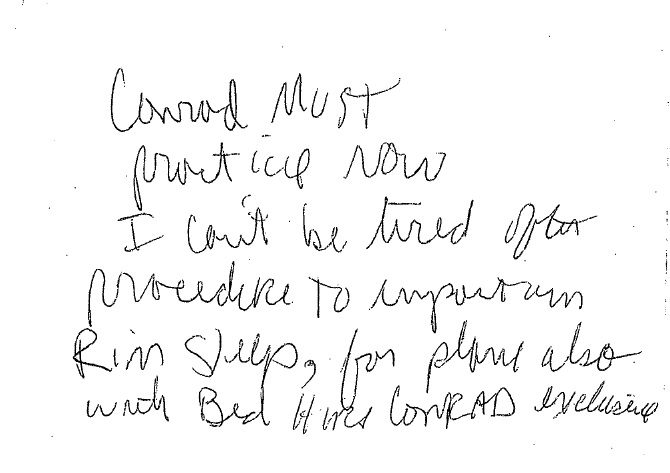 Conrad Must
practice Now
I can't be tired after
procedure to important
Rim Sleep, for plane also
with Bed Hires CONRAD exclusive